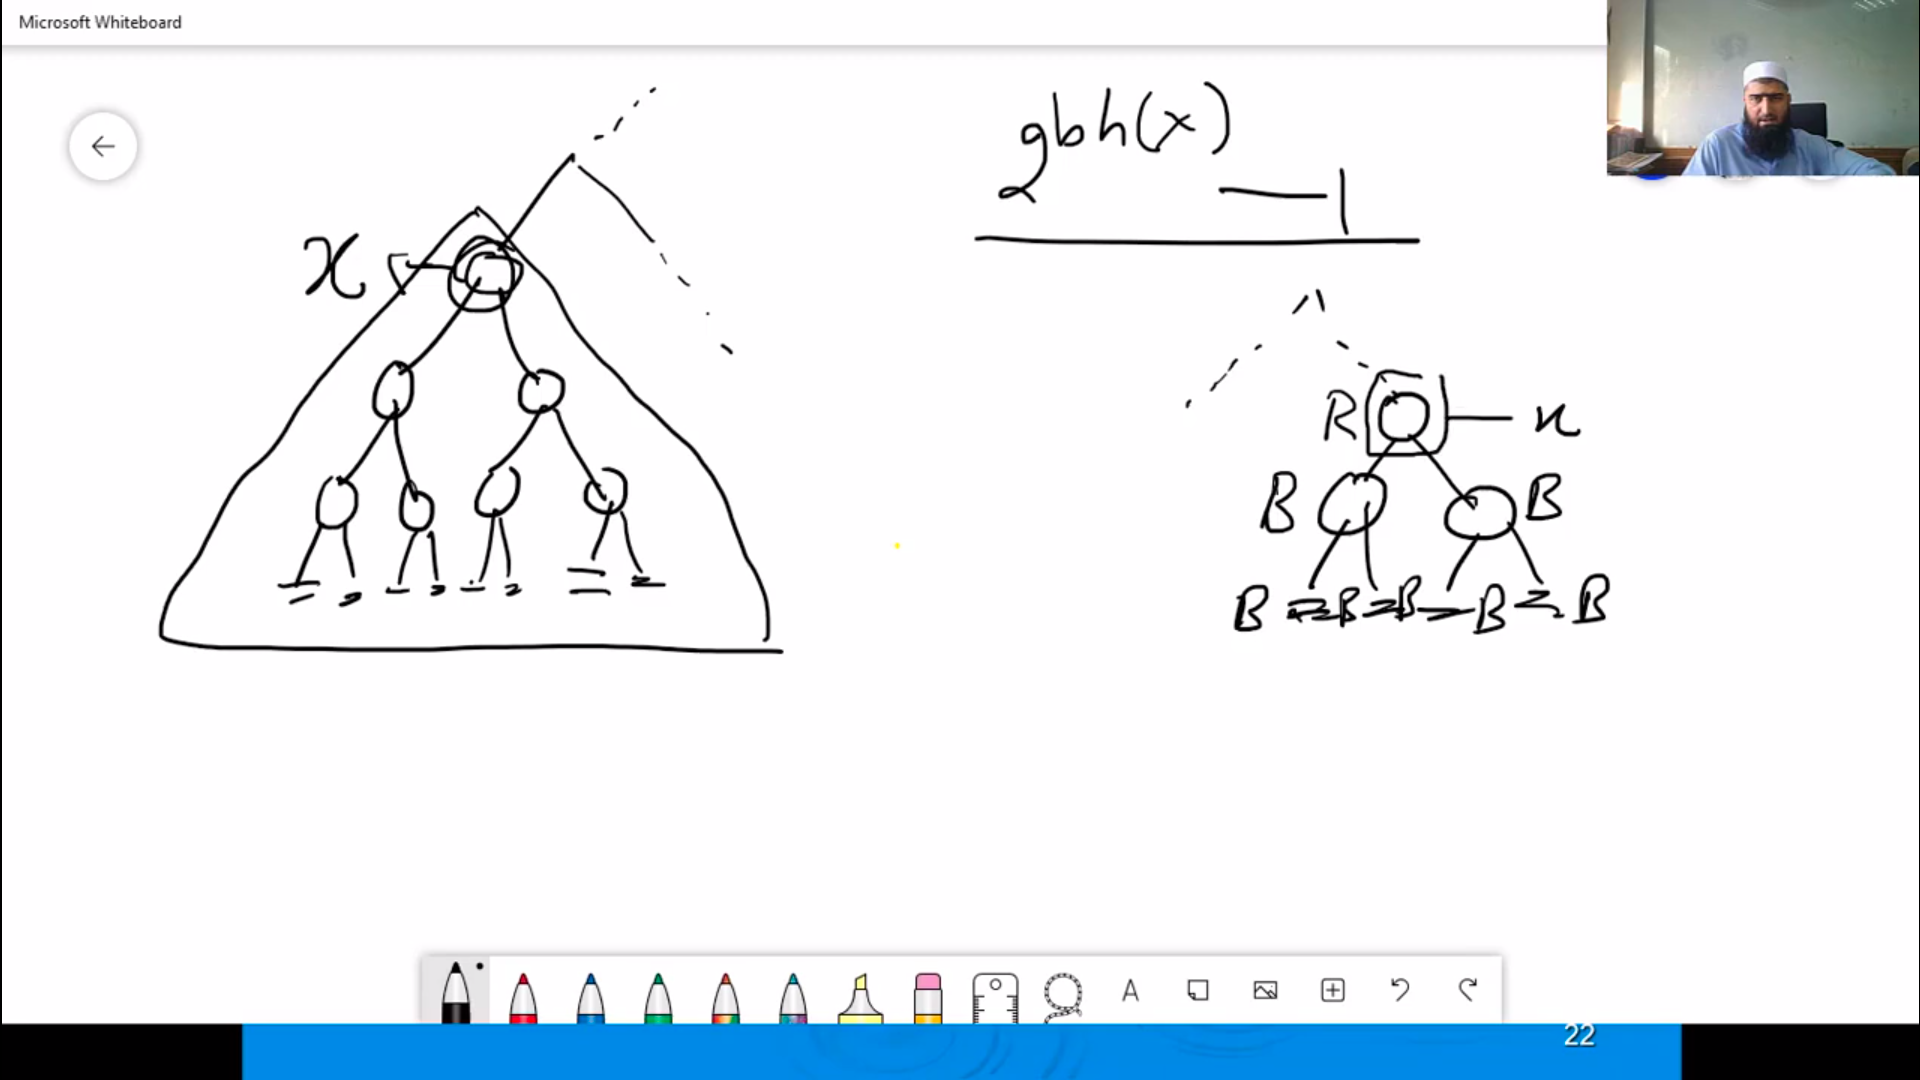 Microsoft Whiteboard
2^bh(x) - 1
x
R x
B B
B B B B B
A
22